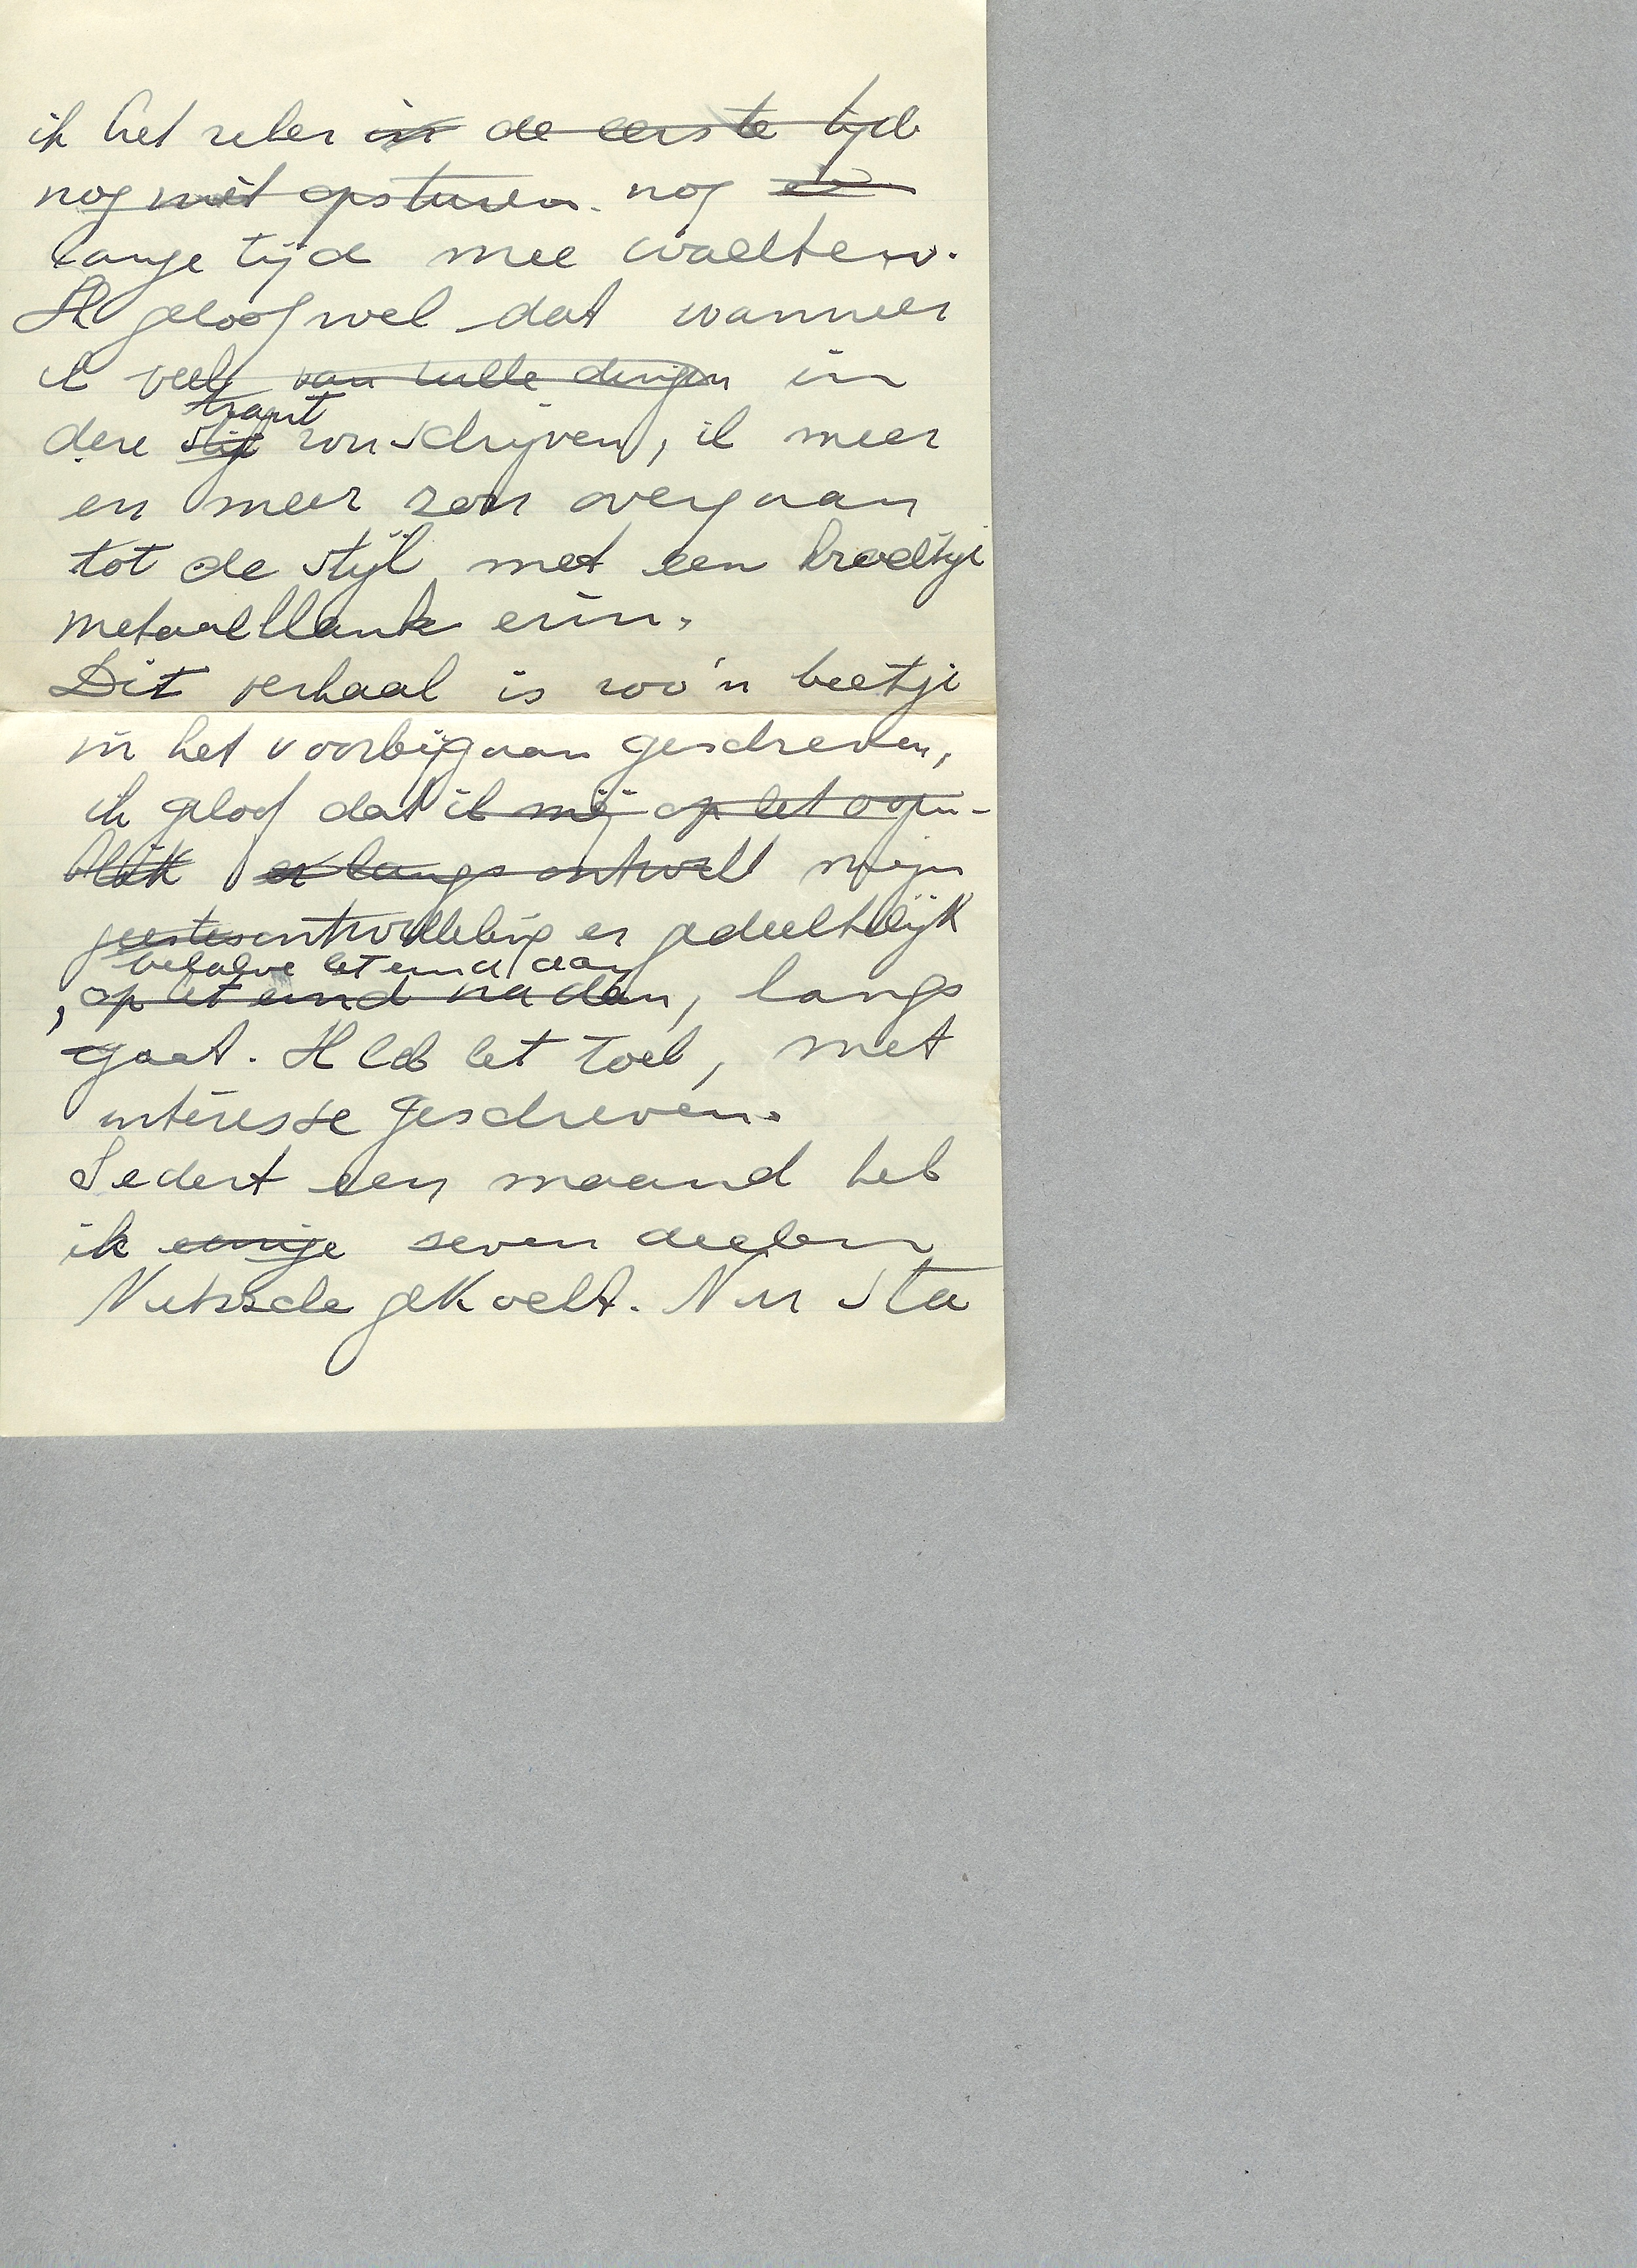 ik het zeker in de eerste tijd
nog niet opsturen. nog
lange tijd mee wachten.
Ik geloof wel dat wanneer
ik veel van zulke dingen in
trant
deze stijl zou schrijven, ik meer
en meer zou overgaan
tot de stijl met een
metaalklank erin.
Dit verhaal is zoo'n beetje
in het voorbijgaan geschreven,
ik geloof dat ik mij op het oogen-
blik er langs ontwikkel mijn
geestesontwikkeling er gedeeltelijk
behalve het eind dan
, op het eind na dan, langs
gaat. Ik heb het toch, met
interesse geschreven.
Sedert een maand heb
ik eenige zeven deelen
Nietzsche gekocht. Nu sta